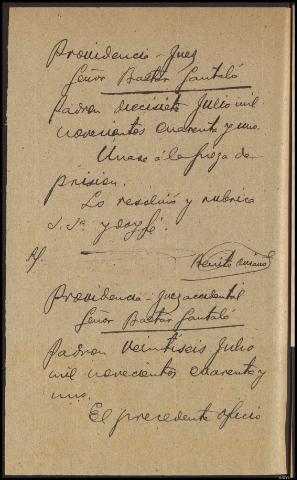 Providencia - Juez
Señor Baltar Santaló
Padron diecisiete Julio mil
novecientos cuarenta y uno.
Unase á la pieza de
prision.
Lo resolvió y rubrica
S. Sª y doy fé.
Benito
Providencia - Juez accidental
Señor Baltar Santaló
Padron veintiseis Julio
mil novecientos cuarenta y
uno.
El precedente oficio